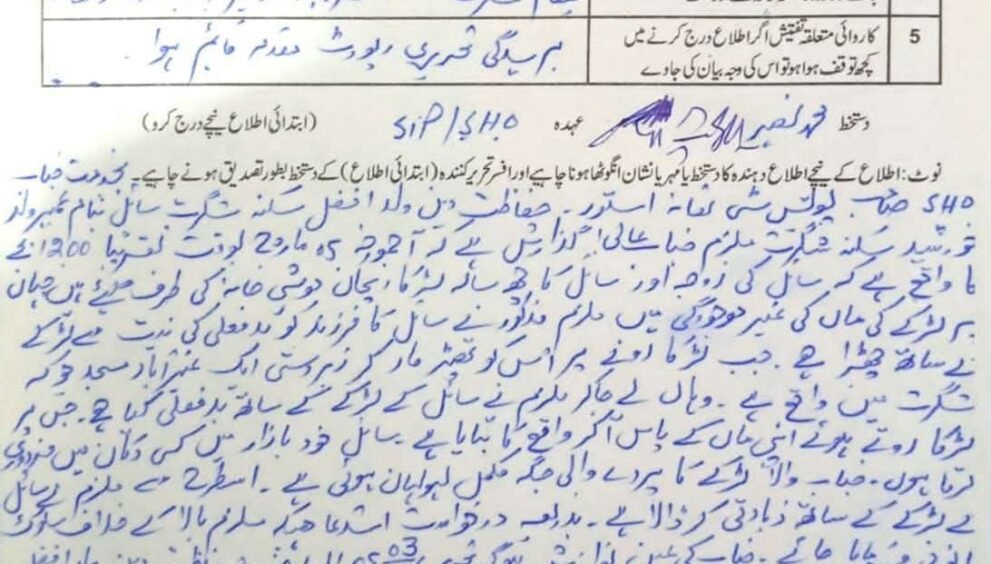 5 کاروائی متعلقہ تفتیش اگر اطلاع درج کرنے میں کچھ توقف ہوا ہو تو اس کی وجہ بیان کی جاوے
برسیدگی تحریری رپورٹ مقدمہ قائم ہوا۔
دستخط محمد نصیر عہدہ SIP/SHO (ابتدائی اطلاع نیچے درج کرو)
نوٹ: اطلاع کے نیچے اطلاع دہندہ کا دستخط یا مہر یا نشان انگوٹھا ہونا چاہیے اور افسر تحریر کنندہ (ابتدائی اطلاع) کے دستخط بطور تصدیق ہونے چاہیے۔ بخدمت جناب
SHO صاحب پولیس سٹی تھانہ استور۔ حفاظت دین ولد افضل سکنہ شنگرت سائل بنام عمیر ولد
خورشید سکنہ شنگرت ملزم جناب عالی! گزارش ہے کہ آج مورخہ 05 مارچ بوقت تقریباً 1200 بجے
کا واقع ہے کہ سائل کی زوجہ اور سائل کا سالہ لڑکا ریحان مویشی خانہ کی طرف گئے ہیں جہاں
پر لڑکے کی ماں کی غیر موجودگی میں ملزم مذکور نے سائل کا فرزند کو بدفعلی کی نیت سے لڑکے
کے ساتھ چھڑا ہے۔ جب لڑکا رونے پر اس کو تھپڑ مار کر زبردستی ایک غیر آباد مسجد جو کہ
شنگرت میں واقع ہے۔ وہاں لے جا کر ملزم نے سائل کے لڑکے کے ساتھ بدفعلی کیا ہے۔ جس پر
لڑکا روتے ہوئے اپنی ماں کے پاس آکر واقع کا بتایا ہے۔ سائل خود بازار میں کسی دکان میں مزدوری
کرتا ہوں۔ جناب والا! لڑکے کا پردے والی جگہ مکمل لہولہان ہوئی ہے۔ اسطرح سے ملزم نے سائل
کے لڑکے کے ساتھ زیادتی کر ڈالا ہے۔ بذریعہ درخواست استدعا ھیکہ ملزم بالا کے خلاف
فرمایا جائے۔ جناب کی عین نوازش ہوگی